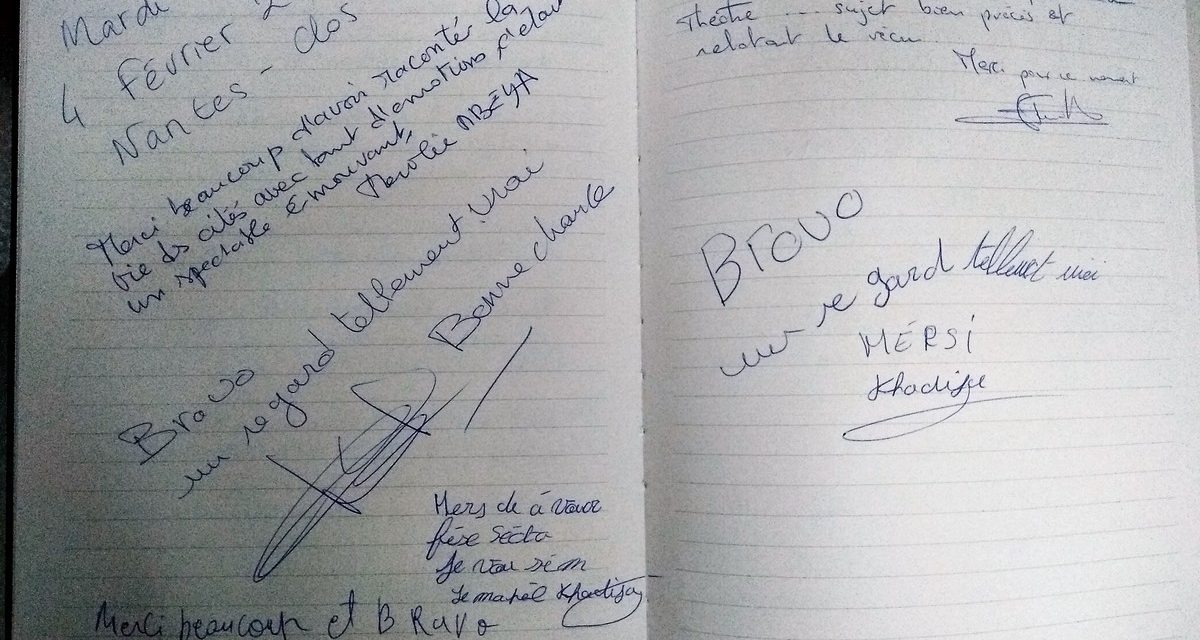 Mardi
4 Février 2
Nantes - clos
Merci beaucoup d'avoir raconté la
vie des cités avec tant d'émotions c'était
un spectacle émouvant,
ABÉYA
Bravo
un regard tellement vrai
Bonne chance
Mers de à vavoir
Je mapèl Khadija
Merci beaucoup et BRavo
Théâtre ... sujet bien précis et
relatant le vécu.
Merci pour ce moment
Bravo
un regard tellemet
MÉRSi
Khadija